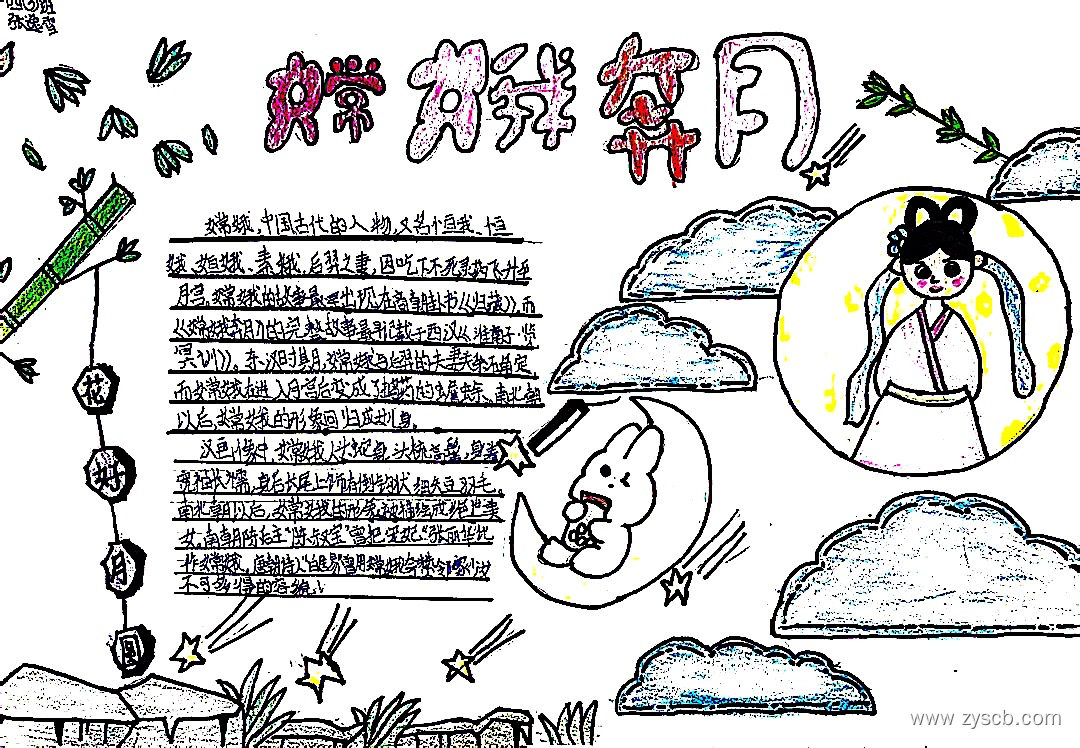 张逸雪
嫦娥奔月
嫦娥,中国古代的人物,又名恒我、恒
娥、姮娥、素娥,后羿之妻,因吃下不死灵药飞升至
月宫。嫦娥的故事最早出现在商朝卦书《归藏》。而
《嫦娥奔月》的完整故事最早记载于西汉《淮南子·览
冥训》。东汉时期,嫦娥与后羿的夫妻关系确定,
而嫦娥在进入月宫后变成了捣药的蟾蜍。南北朝
以后,嫦娥的形象回归成女儿身。
汉画像中,嫦娥人头蛇身,头梳高髻,身着
宽袖长襦,身后长尾上饰有倒钩状细短羽毛。
南北朝以后,嫦娥的形象被描绘成绝世美
女。南朝陈后主“陈叔宝”曾把宠妃“张丽华比
作嫦娥。唐朝诗人白居易曾用嫦娥夸赞邻家少女
不可多得的容貌。
花
好
月
圆
www zyscb.com